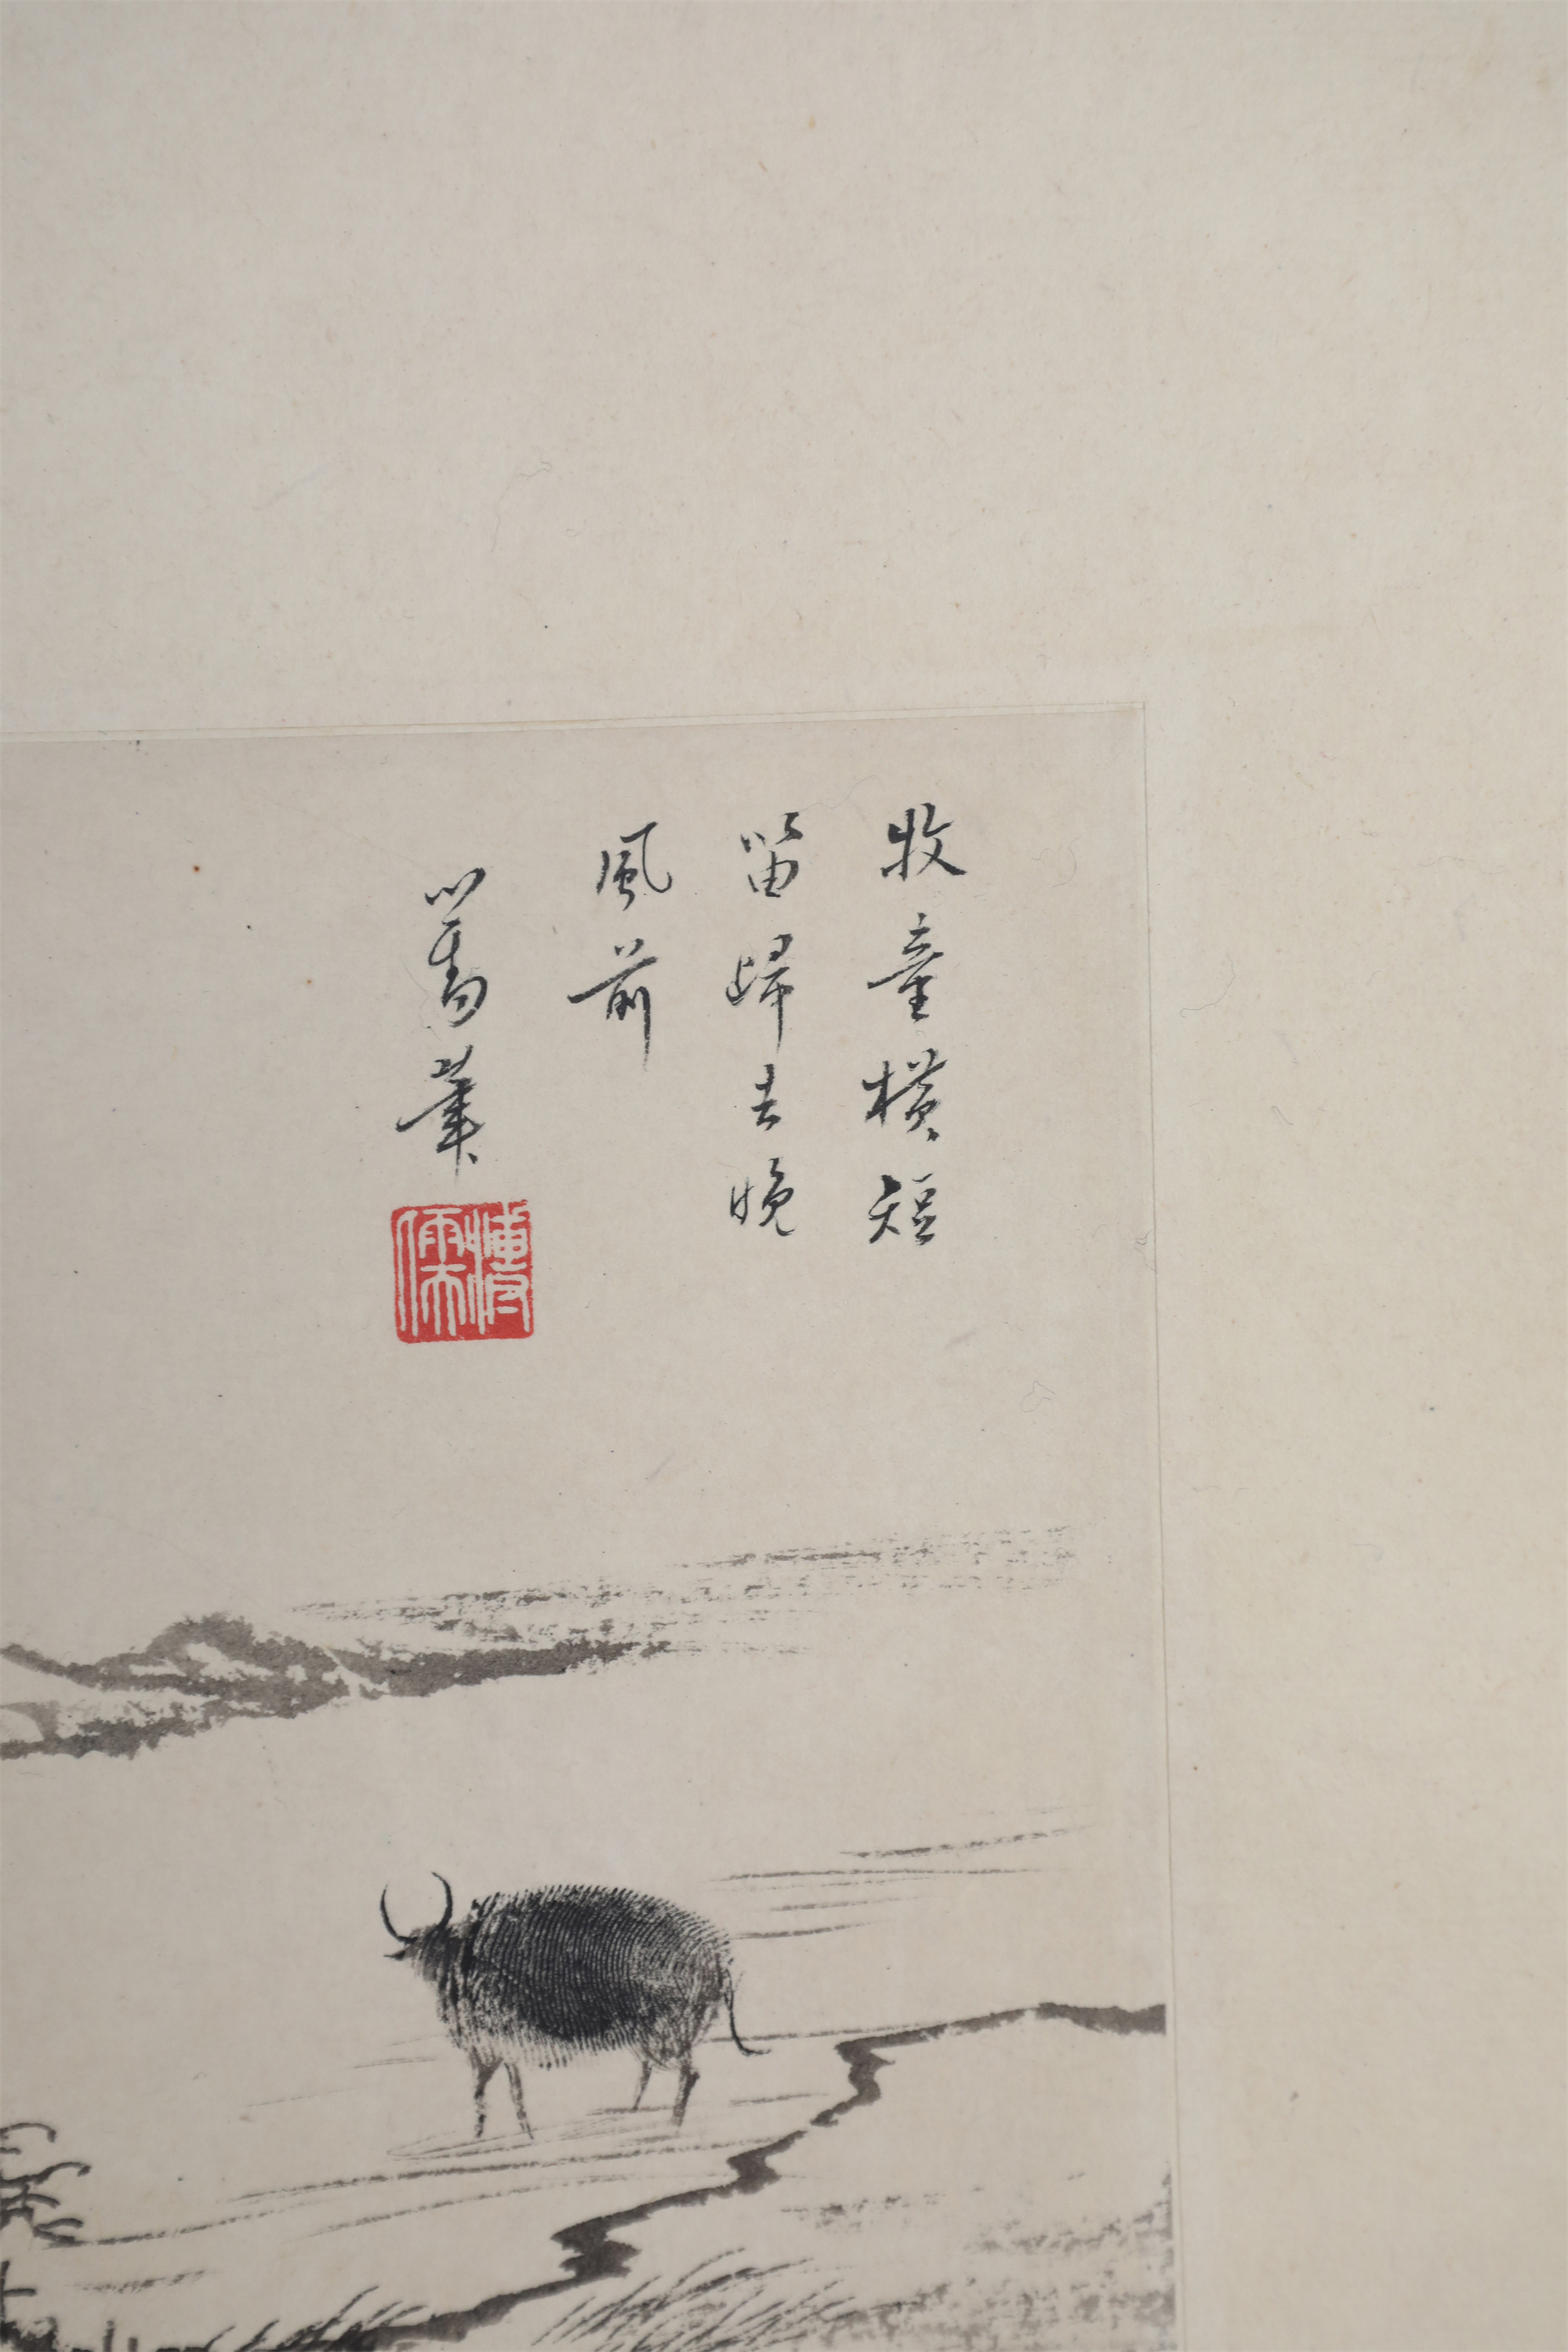 牧童橫短
笛歸去晚
風前
心畬筆
溥儒